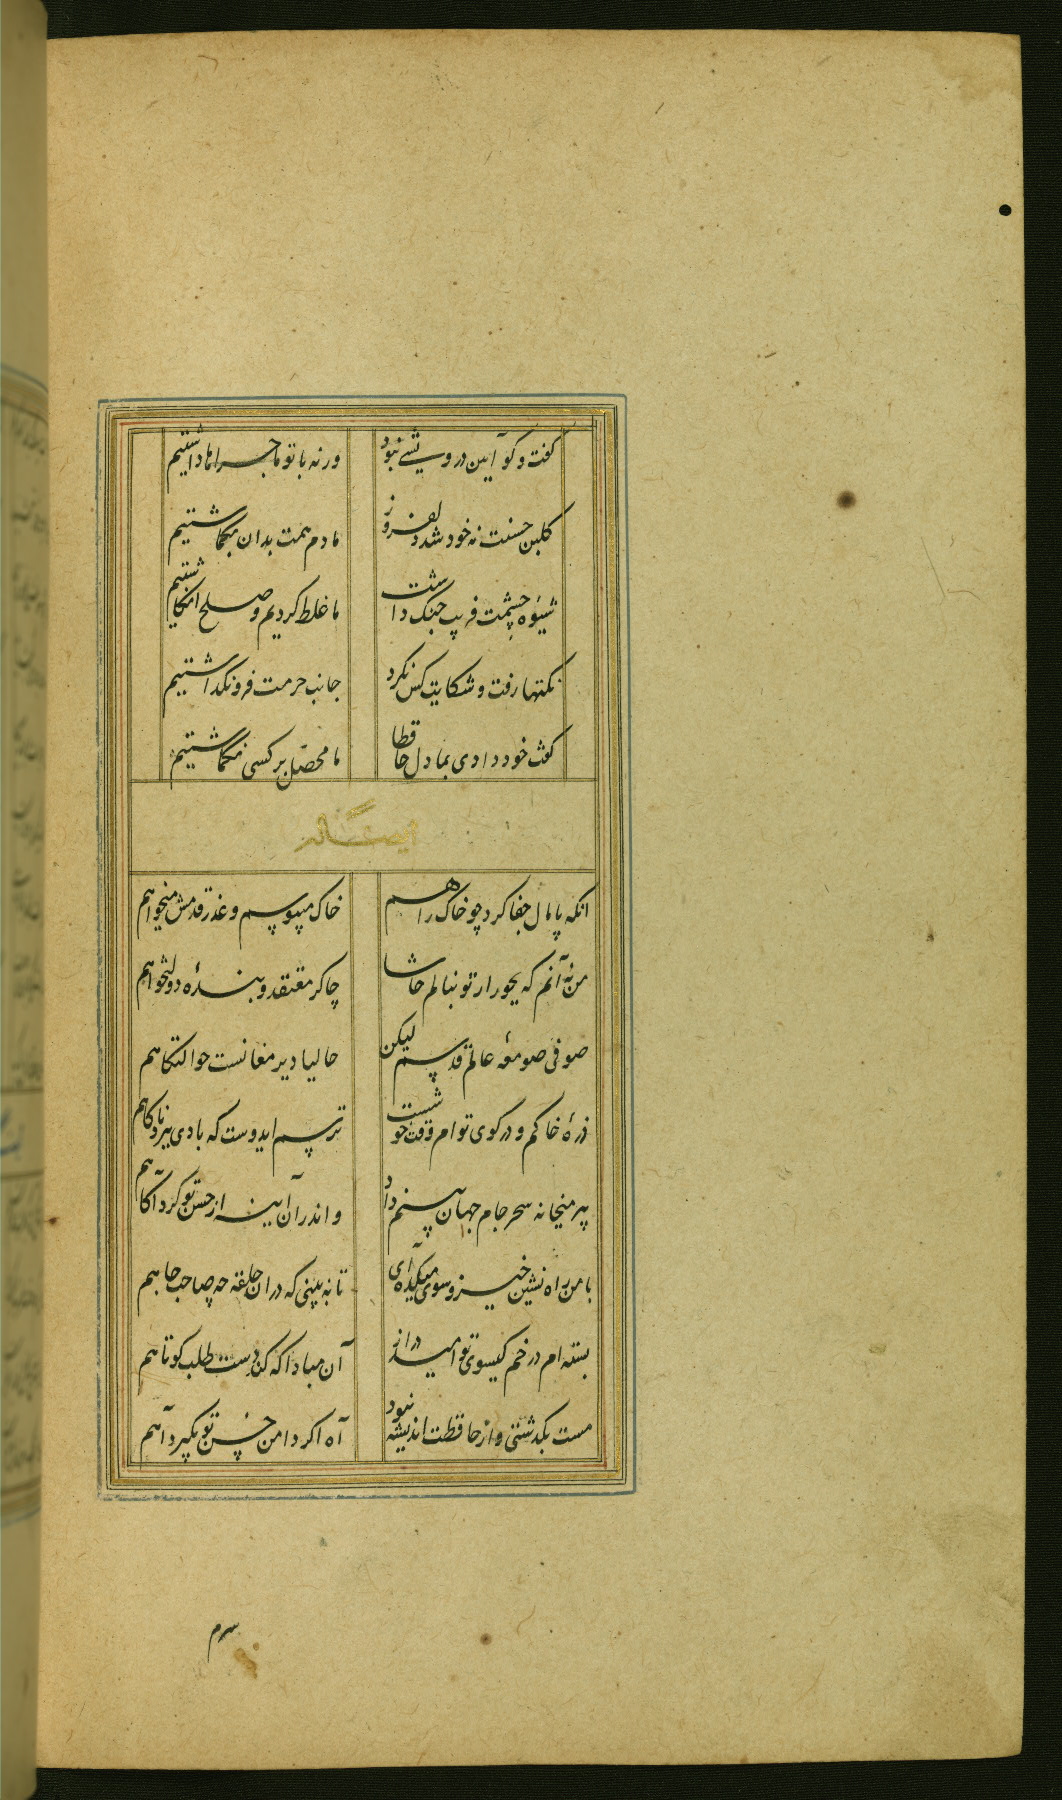 گفت و گو آیین درویشی نبود ورنه با تو ماجراها داشتیم
گلبن حسنت نه خود شد دلفروز ما دم همت بدان بگماشتیم
شیوه چشمت فریب جنگ داشت ما غلط کردیم و صلح انگاشتیم
نکتها رفت و شکایت کس نکرد جانب حرمت فرو نگذاشتیم
گفت خود دادی بما دل حافظا ما محصل بر کسی نگماشتیم
انکه پامال جفا کرد چو خاک راهم خاک میبوسم و عذر قدمش میخواهم
من نه آنم که بجور از تو بنالم حاشا چاکر معتقد و بنده دولتخواهم
صوفی صومعه عالم قدسم لیکن حالیا دیر مغانست حوالتگاهم
ذره خاکم و در کوی توام وقت خوشست ترسم ایدوست که بادی ببرد ناگاهم
پیر میخانه سحر جام جهان بینم داد و اندر آن آینه از حسن تو کرد آگاهم
با من راه نشین خیز و سوی میکده آی تا به بینی که در ان حلقه چه صاحب جاهم
بسته ام در خم گیسوی تو امید دراز آن مبادا که کند دست طلب کوتاهم
مست بگذشتی و از حافظت اندیشه نبود آه اگر دامن حسن تو بگیرد آهم